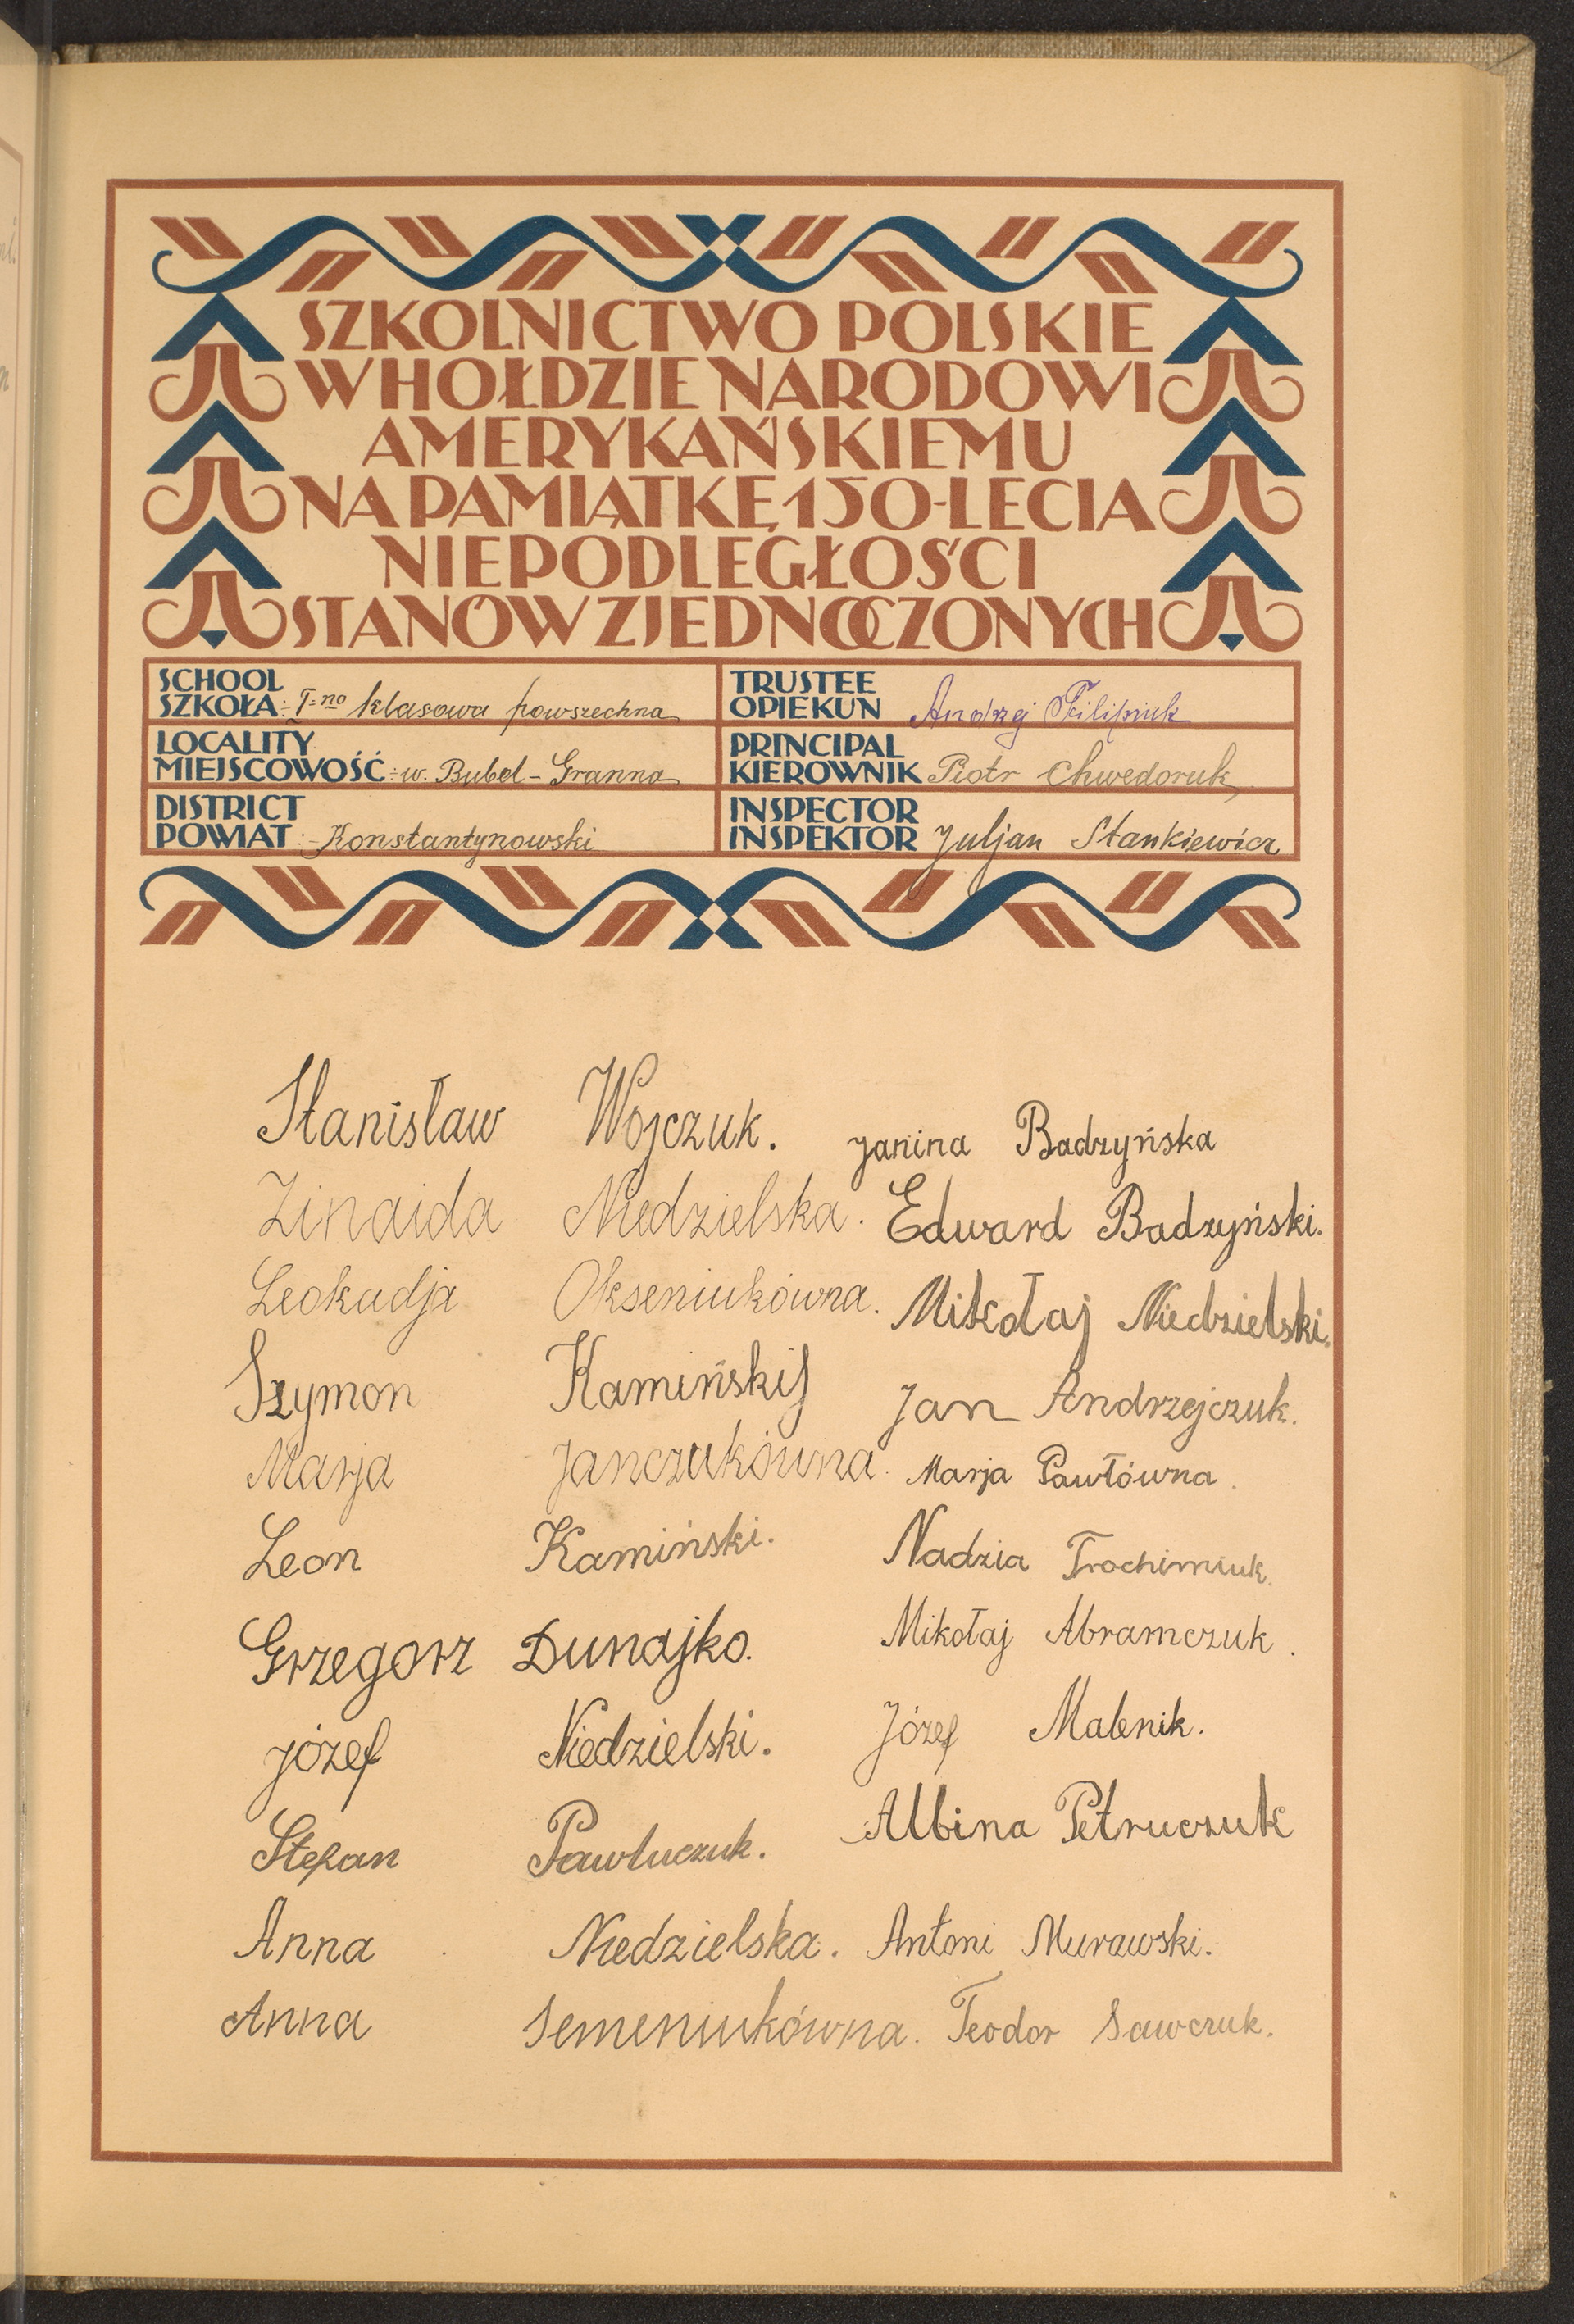 SZKOLNICTWO POLSKIE
W HOŁDZIE NARODOWI
AMERYKAŃSKIEMU
NA PAMIĄTKĘ 150-LECIA
NIEPODLEGŁOŚCI
STANÓW ZJEDNOCZONYCH
SCHOOL
SZKOŁA: I-no klasowa powszechna
LOCALITY
MIEJSCOWOŚĆ: w. Bubel-Granna
DISTRICT
POWIAT: Konstantynowski
TRUSTEE
OPIEKUN Andrzej Filipiuk
PRINCIPAL
KIEROWNIK Piotr Chwedoruk
INSPECTOR
INSPEKTOR Juljan Stankiewicz
Stanisław Wojczuk.
Zinaida Niedzielska.
Leokadja Okseniukówna.
Szymon Kamińskij
Marja Janczukówna.
Leon Kamiński.
Grzegorz Dunajko.
Józef Niedzielski.
Stefan Pawluczuk.
Anna Niedzielska.
Anna Semeniukówna.
Janina Badzyńska
Edward Badzyński.
Mikołaj Niedzielski.
Jan Andrzejczuk.
Marja Pawłówna.
Nadzia Trochimiuk.
Mikołaj Abramczuk.
Józef Malenik.
Albina Petruczuk
Antoni Murawski.
Teodor Sawczuk.